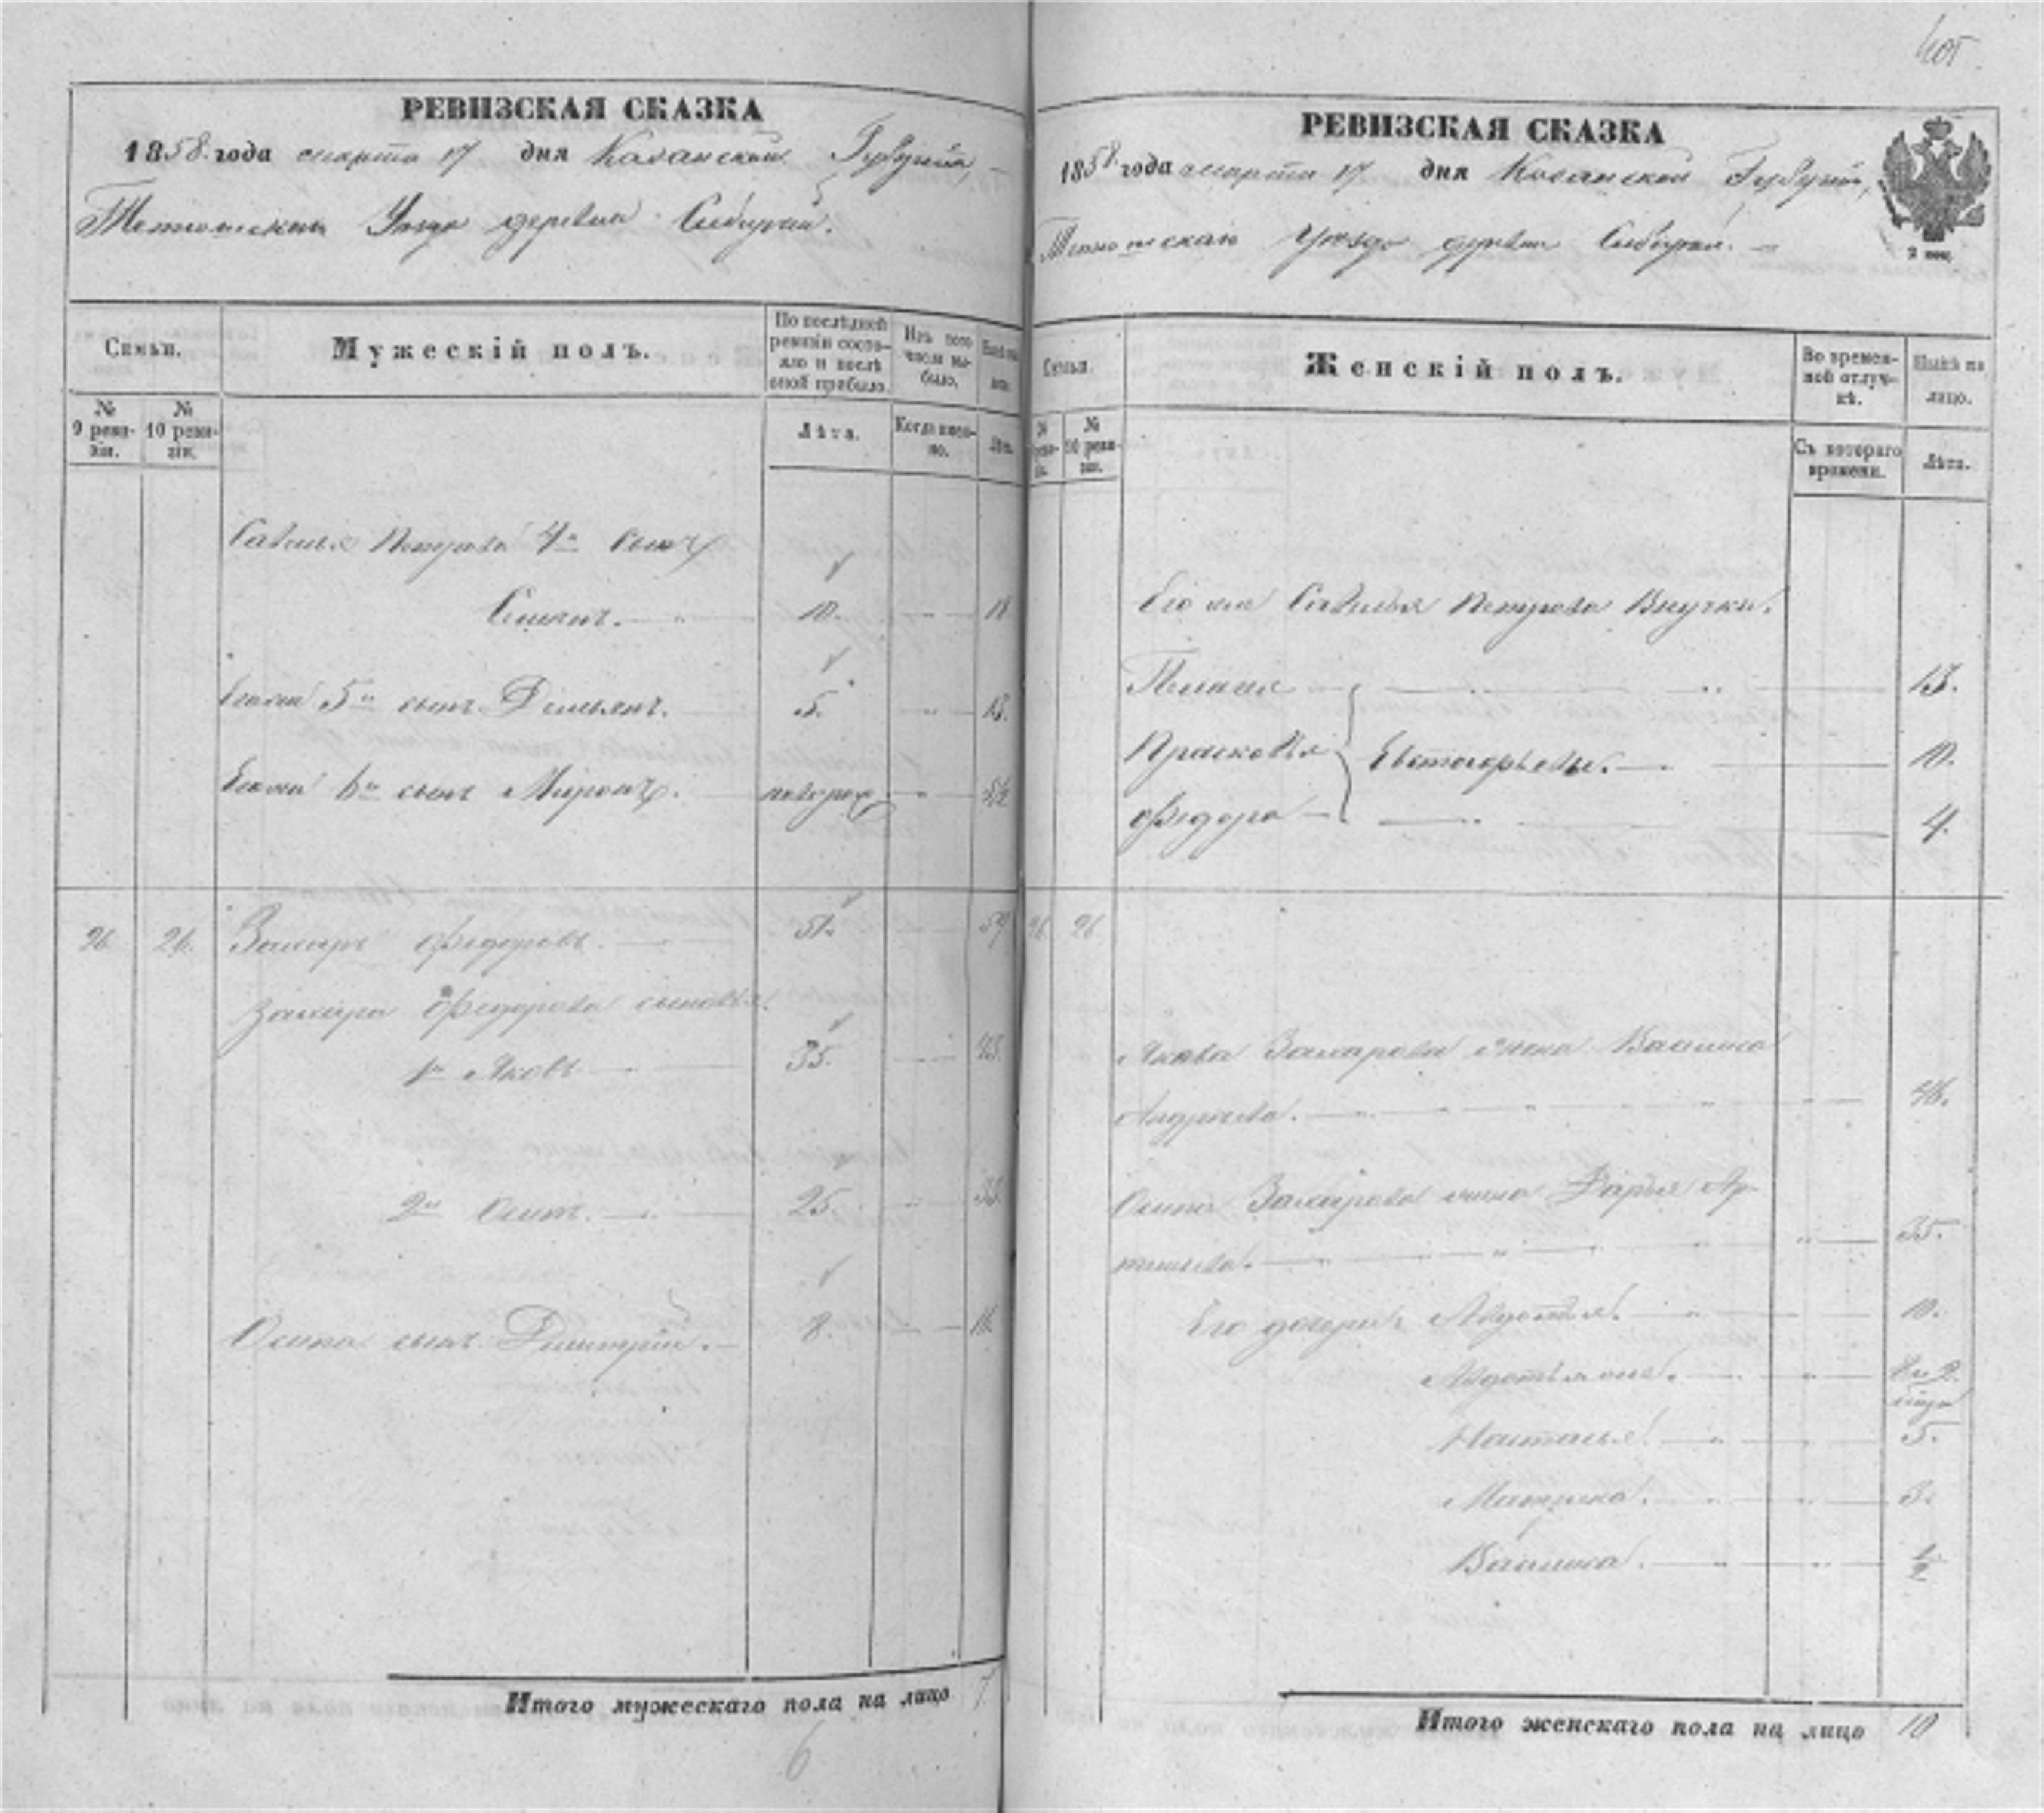 РЕВИЗСКАЯ СКАЗКА
1858 года марта 17 дня Казанской Губерніи,
Тетюшскаго Уезда деревни
Семьи.
Мужескій полъ.
По послѣдней ревизіи состояло и послѣ оной прибыло.
Изъ того числа выбыло.
№ 9 ревизіи.
№ 10 ревизіи.
Лѣта.
Когда именно.
Лѣта.
Савелья Петрова 4й сынъ
Семенъ. 10. 18
5й сынъ Демьянъ. 5. 13.
6й сынъ Миронъ.
26. 26. Захаръ Федоровъ. 51. 59
Захара Федорова сыновья.
1й Яковъ 35. 43.
2й Осипъ. 25. 33.
Осипа сынъ Дмитрій. 8. 16.
Итого мужескаго пола на лицо 7
6
РЕВИЗСКАЯ СКАЗКА
1858 года марта 17 дня Казанской Губерніи,
Тетюшскаго Уезда деревни
Семьи.
Женскій полъ.
Во временной отлучкѣ.
Нынѣ на лицо.
№ 10 ревизіи.
Съ котораго времени.
Лѣта.
Его же Савелья Петрова Внучки.
Пелагея 13.
Прасковья Евстигнѣевы. 10.
Федора 4.
26 26
Якова Захарова жена Василиса
Андреева. 46.
Осипа Захарова жена Дарья Ар-
темьева. 35.
Его дочери: Авдотья. 10.
Наталья. 5.
Матрена. 3.
Василиса. 1/2
Итого женскаго пола на лицо 10